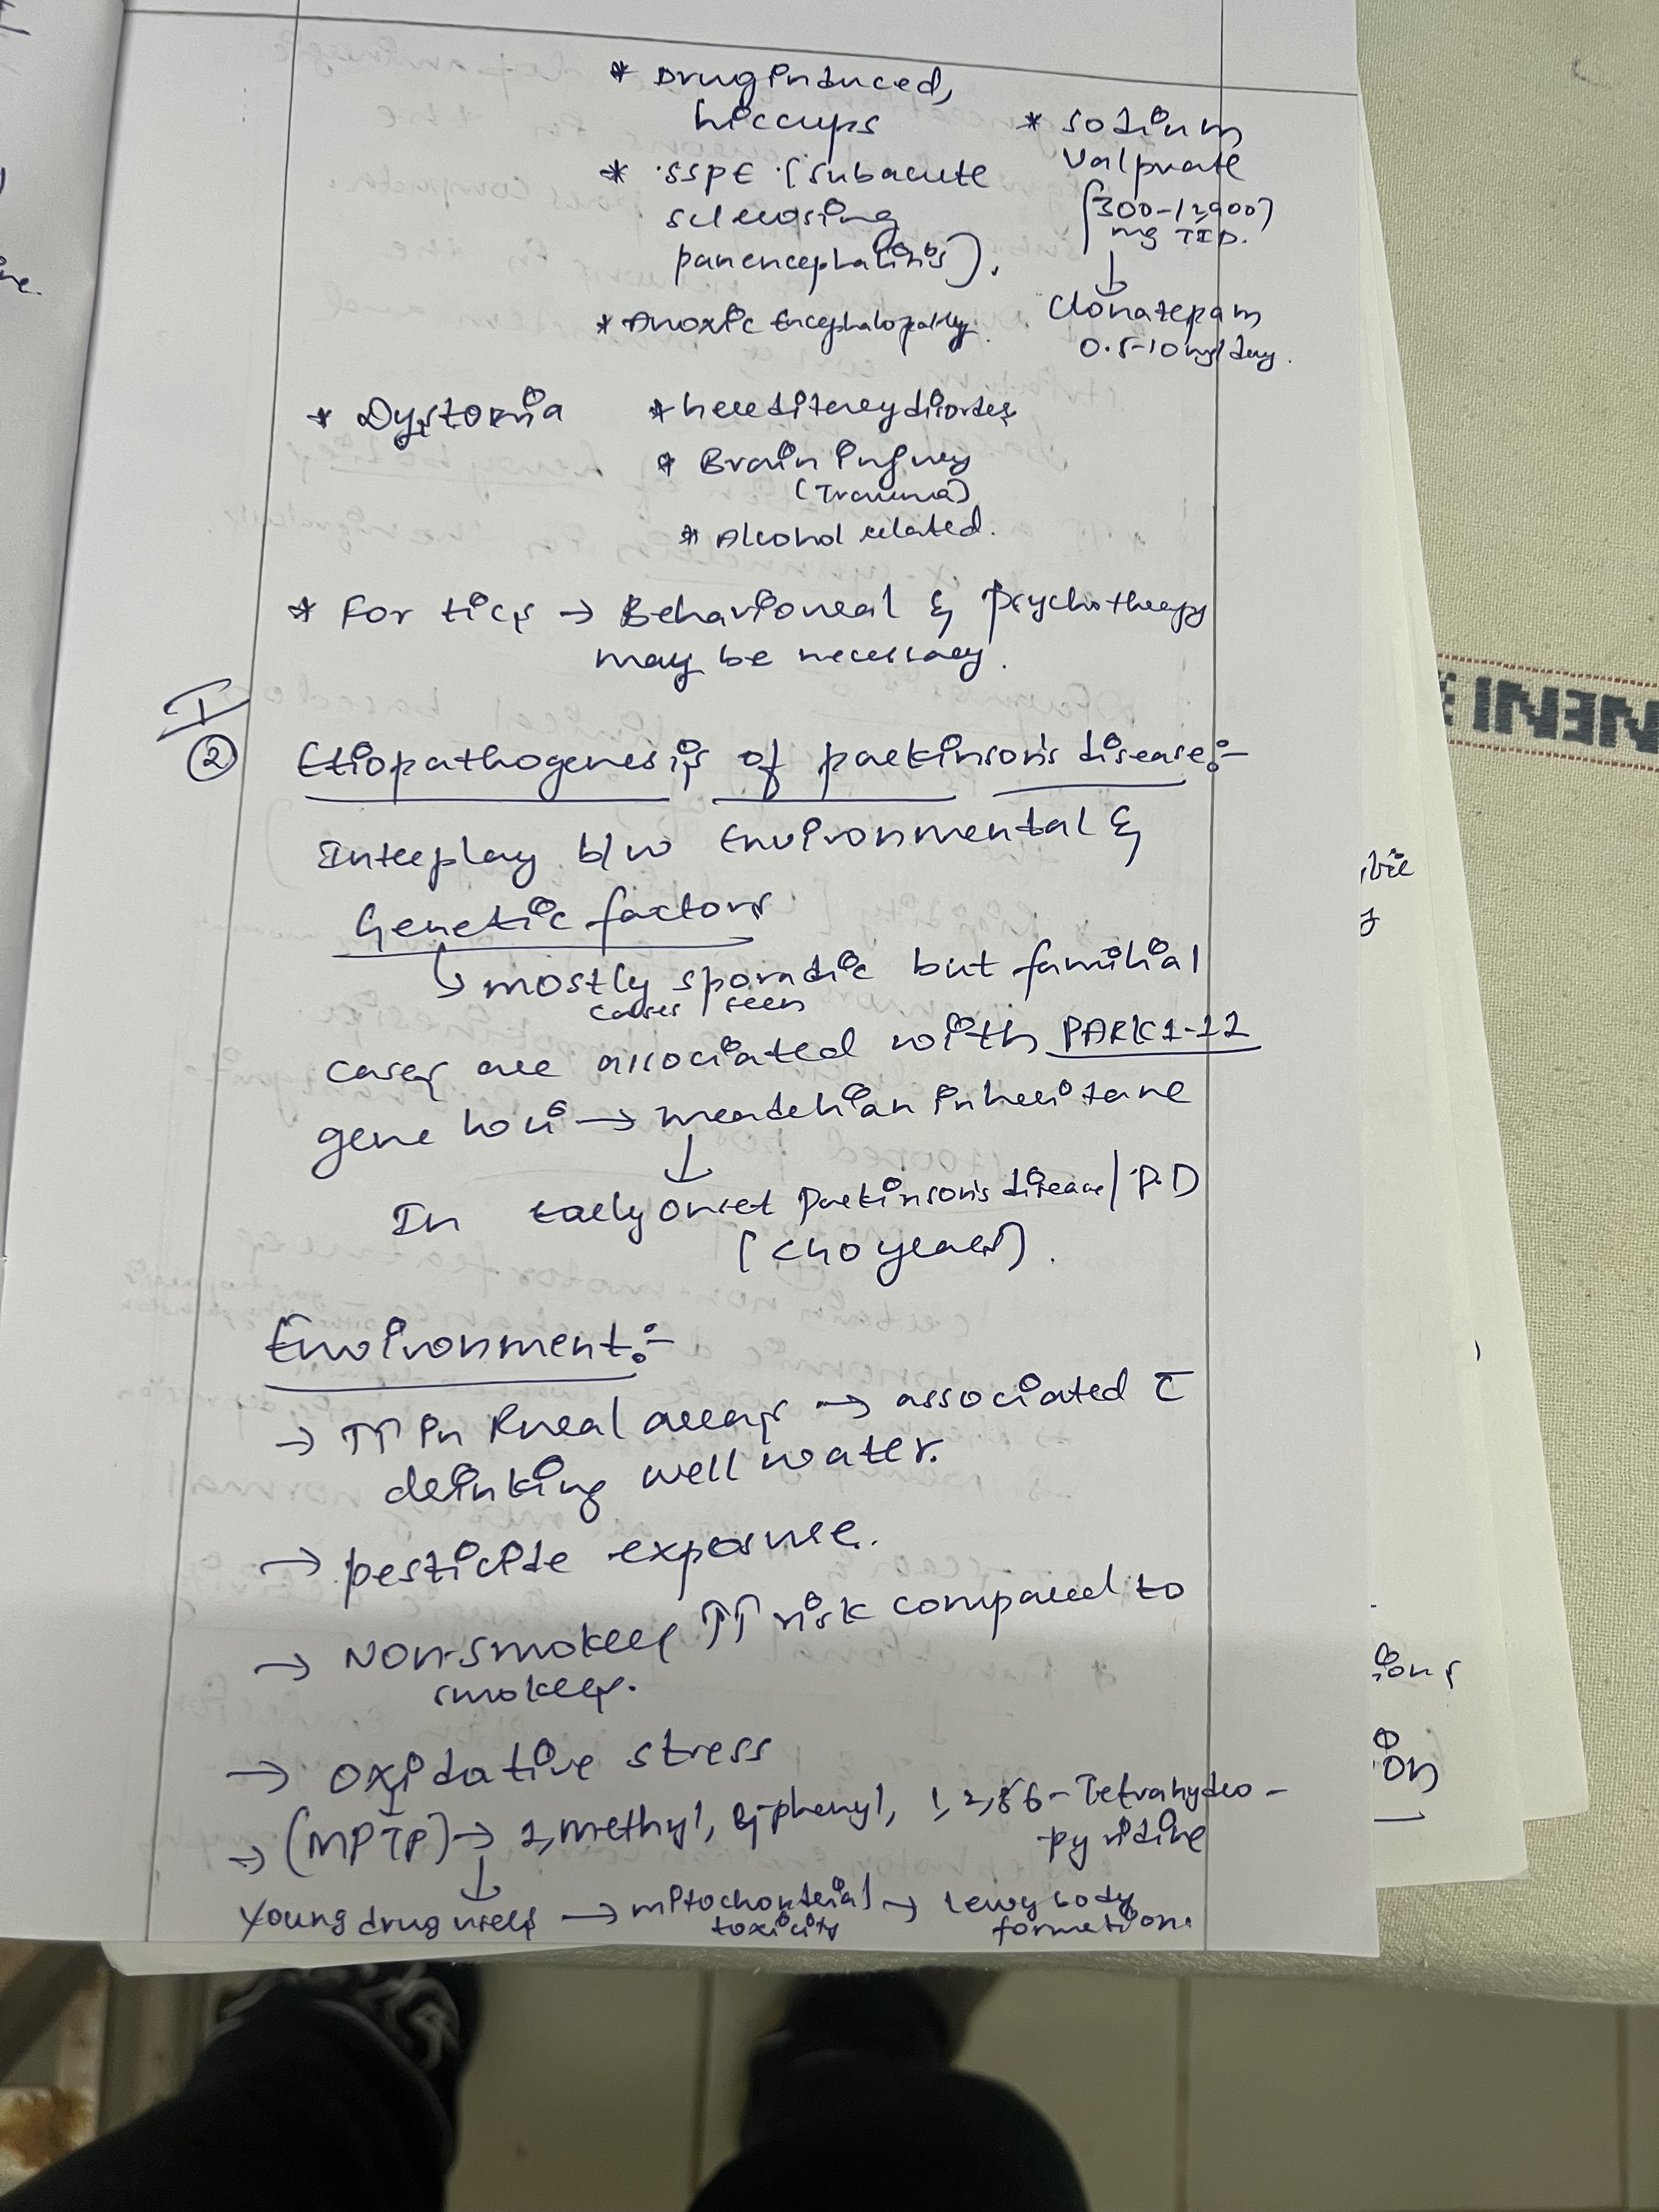 * Drug induced,
hiccups
* SSPE [subacute
sclerosing
panencephalitis].
* Anoxic Encephalopathy.
* Sodium
Valproate
[300-1,200]
mg TID.
↓
Clonazepam
0.5-10mg/day.
* Dystonia
* hereditery disorders
* Brain Injury
(Trauma)
* Alcohol related.
* For tics → Behavioural & Psychotherapy
may be necessary.
I
② Etiopathogenesis of parkinson's disease:-
Interplay b/w Environmental &
Genetic factors
↳ mostly sporadic but familial
cases seen
cases are associated with PARK1-11
gene loci → mendelian inheritane
↓
In Early onset Parkinson's disease/P.D
[<40 years].
Environment:-
→ ↑↑ in Rural areas → associated c̄
drinking well water.
→ pesticide exposure.
→ Non-smokers ↑↑ risk compared to
smokers.
→ oxidative stress
→ (MPTP) → 1, methyl, 4-phenyl, 1,2,3,6-Tetrahydro-
pyridine
↓
Young drug users → mitochondrial → Lewy body
toxicity formation.
NENI